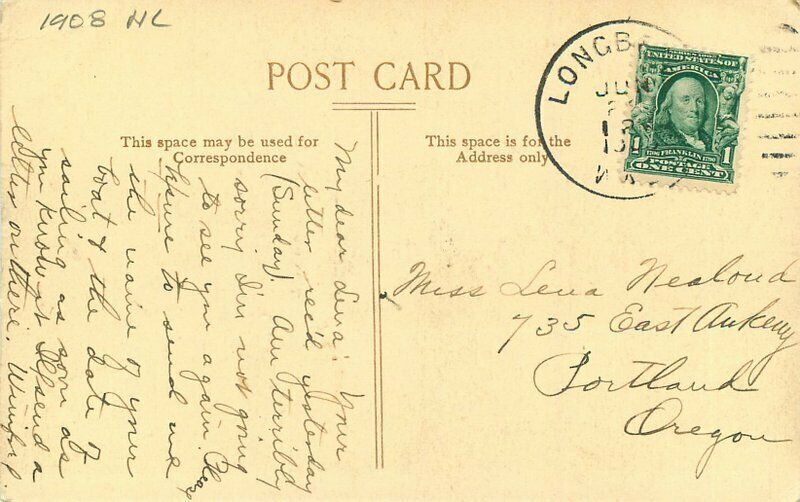 1908 HL
POST CARD
This space may be used for
Correspondence
This space is for the
Address only
LONGB
JUN
WASH
SERIES 1902
UNITED STATES OF
AMERICA
1706 FRANKLIN 1790
POSTAGE
ONE CENT
1
My dear Lena: Your
letter rec'd yesterday
(Sunday). Am terribly
sorry I'm not going
to see you again. Please
figure to send me
the name of your
boat & the date of
sailing as soon as
you know it. I'll send a
letter on there. Winifred
Miss Lena Nealond
735 East Ankeny
Portland
Oregon